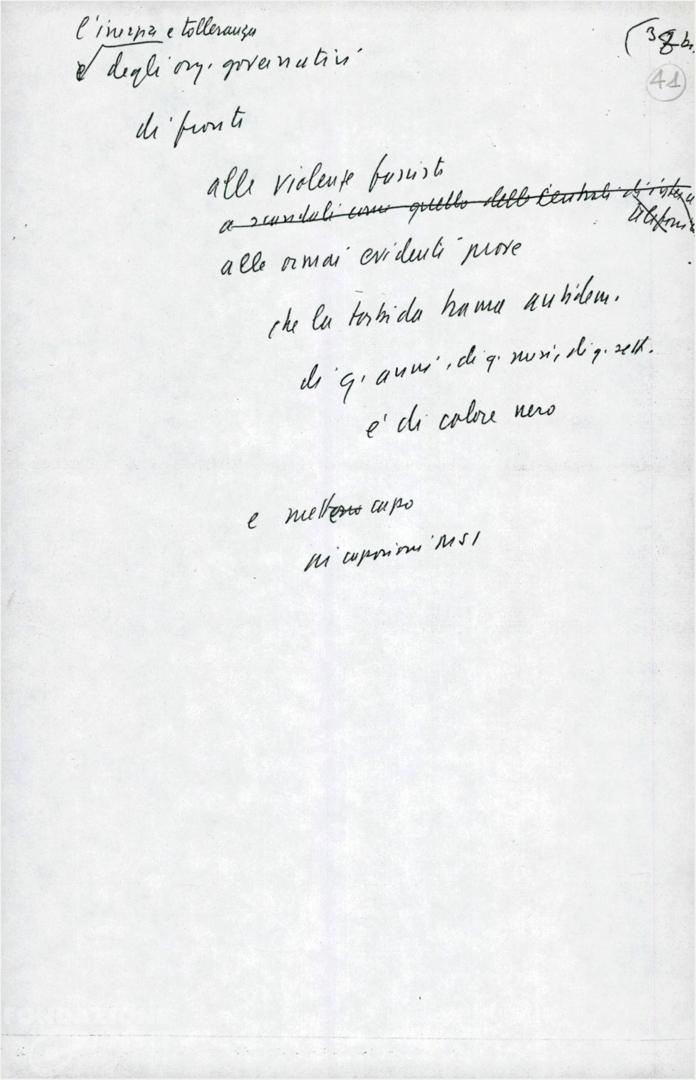 l'inerzia e tolleranza
(38 b.
41
degli org. governativi
di fronte
alle violenze fasciste
a scandali come quello delle Centrali di
alle ormai evidenti prove
che la torbida trama antidem.
di q. anni, di q. mesi, di q. sett.
è di colore nero
e mettono capo
ai caporioni MSI